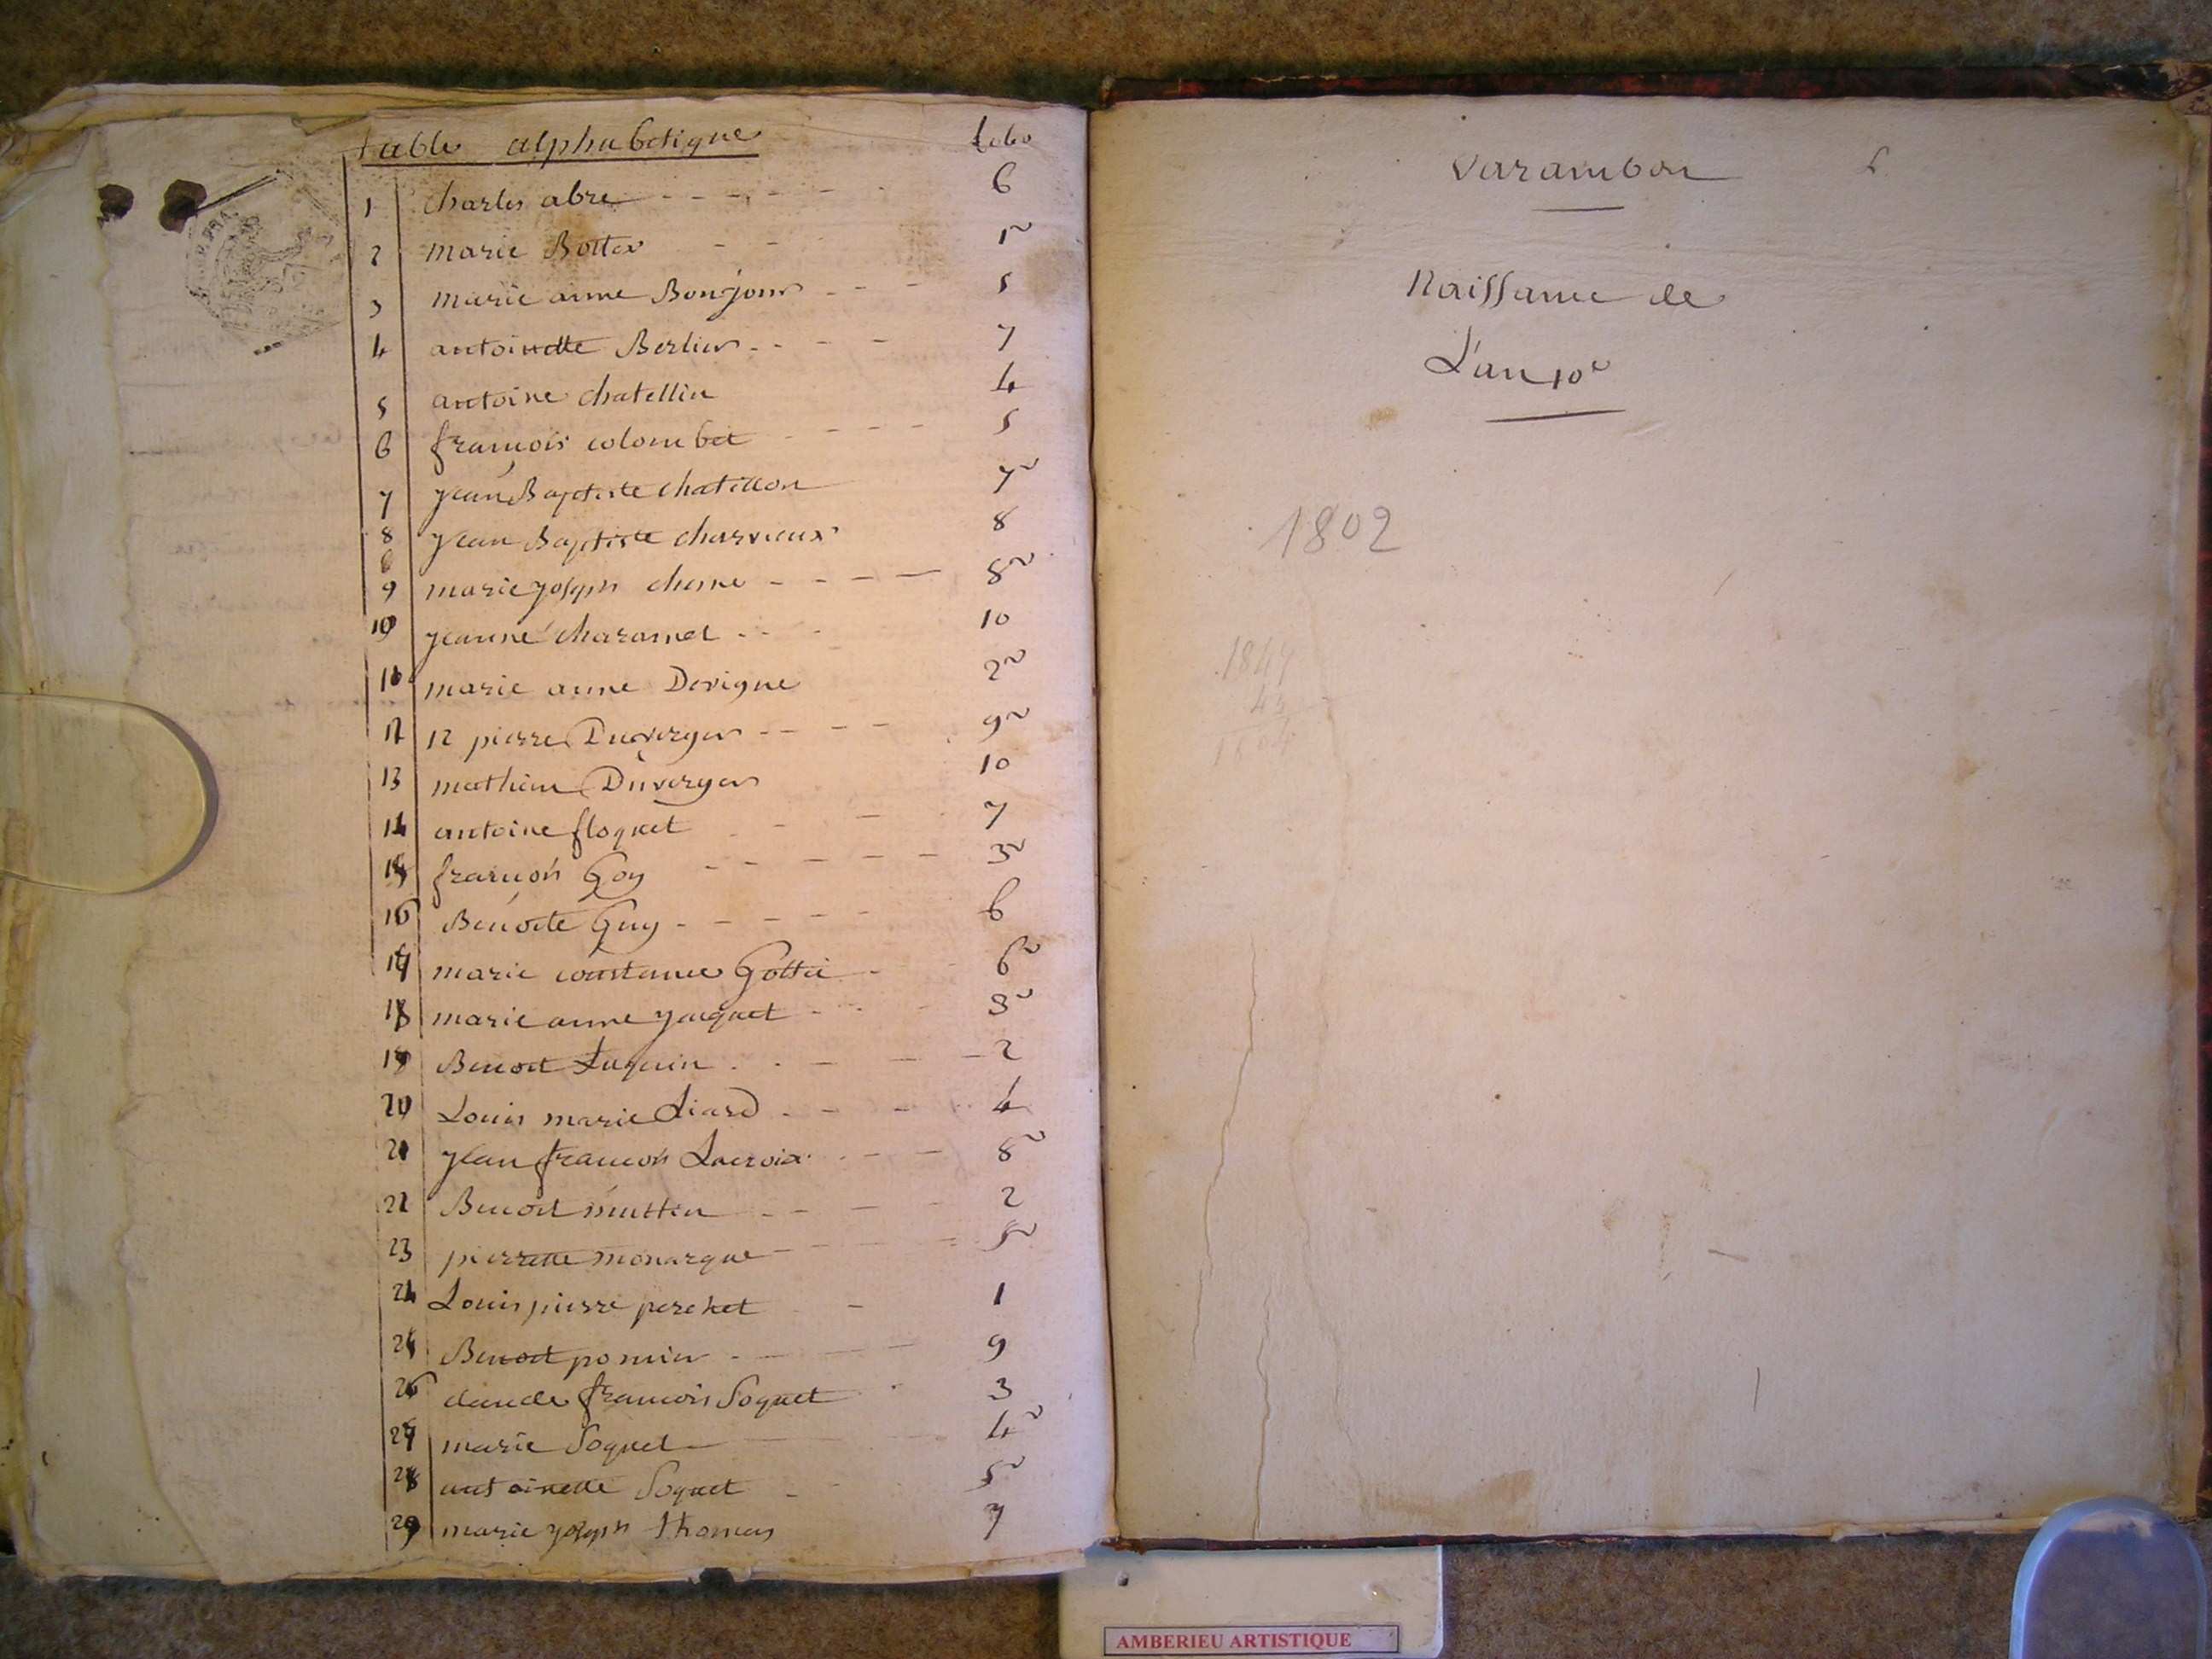 table alphabetique folio
1 charles abre 6
2 marie Bottex 1v
3 marie anne Bonjour 5
4 antoinette Berlier 7
5 antoine chatellin 4
6 francois colombet 5
7 jean Baptiste chatillon 7v
8 jean Baptiste charvieux 8
9 marie joseph chesne 8v
10 jeanne charamel 10
11 marie anne Devigne 2v
12 12 pierre Duverger 9v
13 mathieu Duverger 10
14 antoine floquet 7
15 francois Goy 3v
16 Benoite Guy 6
17 marie constance Gottié 6v
18 marie anne jacquet 3v
19 Benoit Luquin 2
20 Louis marie Liard 4
21 jean francois Lacroix 8v
22 Benoit 2
23 pierrette monarque 5v
24 Louis pierre perchet 1
25 Benoit pomier 9
26 claude francois Soquet 3
27 marie Soquet 4v
28 antoinette Soquet 5v
29 marie joseph thomas 7
Varambon
Naissance de
L'an 10e
1802
AMBERIEU ARTISTIQUE